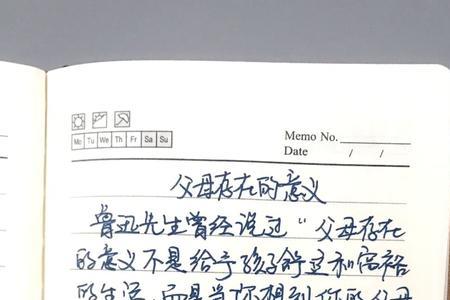 Memo No.
Mo Tu We Th Fr Sa Su
Date / /
父母存在的意义
鲁迅先生曾经说过"父母存在
的意义不是给予孩子舒适和富裕
的生活,而是当你想到你的父母